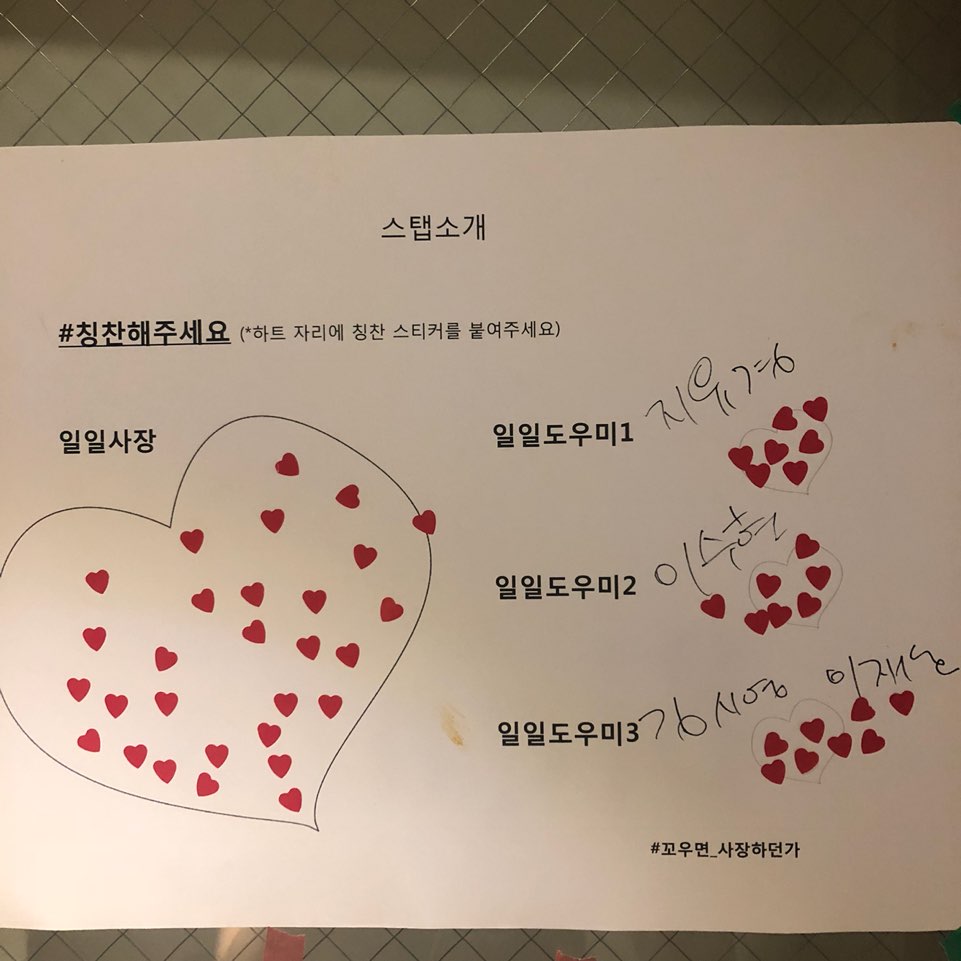 스탭소개
#칭찬해주세요 (*하트 자리에 칭찬 스티커를 붙여주세요)
일일사장
일일도우미1 지유경
일일도우미2 이수현
일일도우미3 김시영 이재눈
#꼬우면_사장하던가